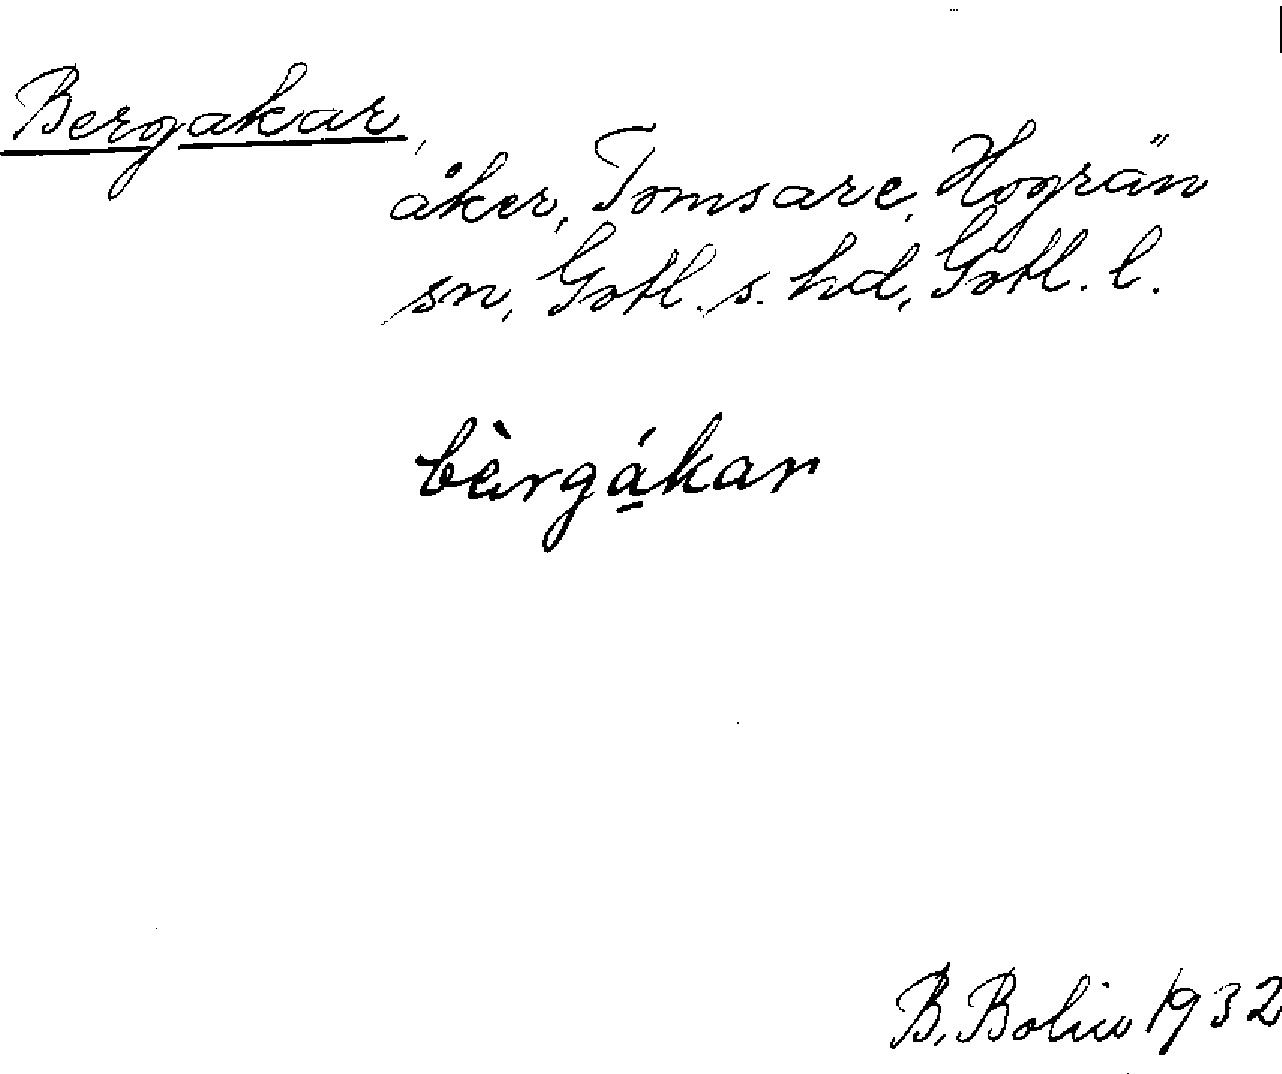 Bergakar,
åker, Tomsare, Hogrän
sn, Gotl. s. hd, Gotl. l.
bèrgá̱kar
B. Bolin 1932